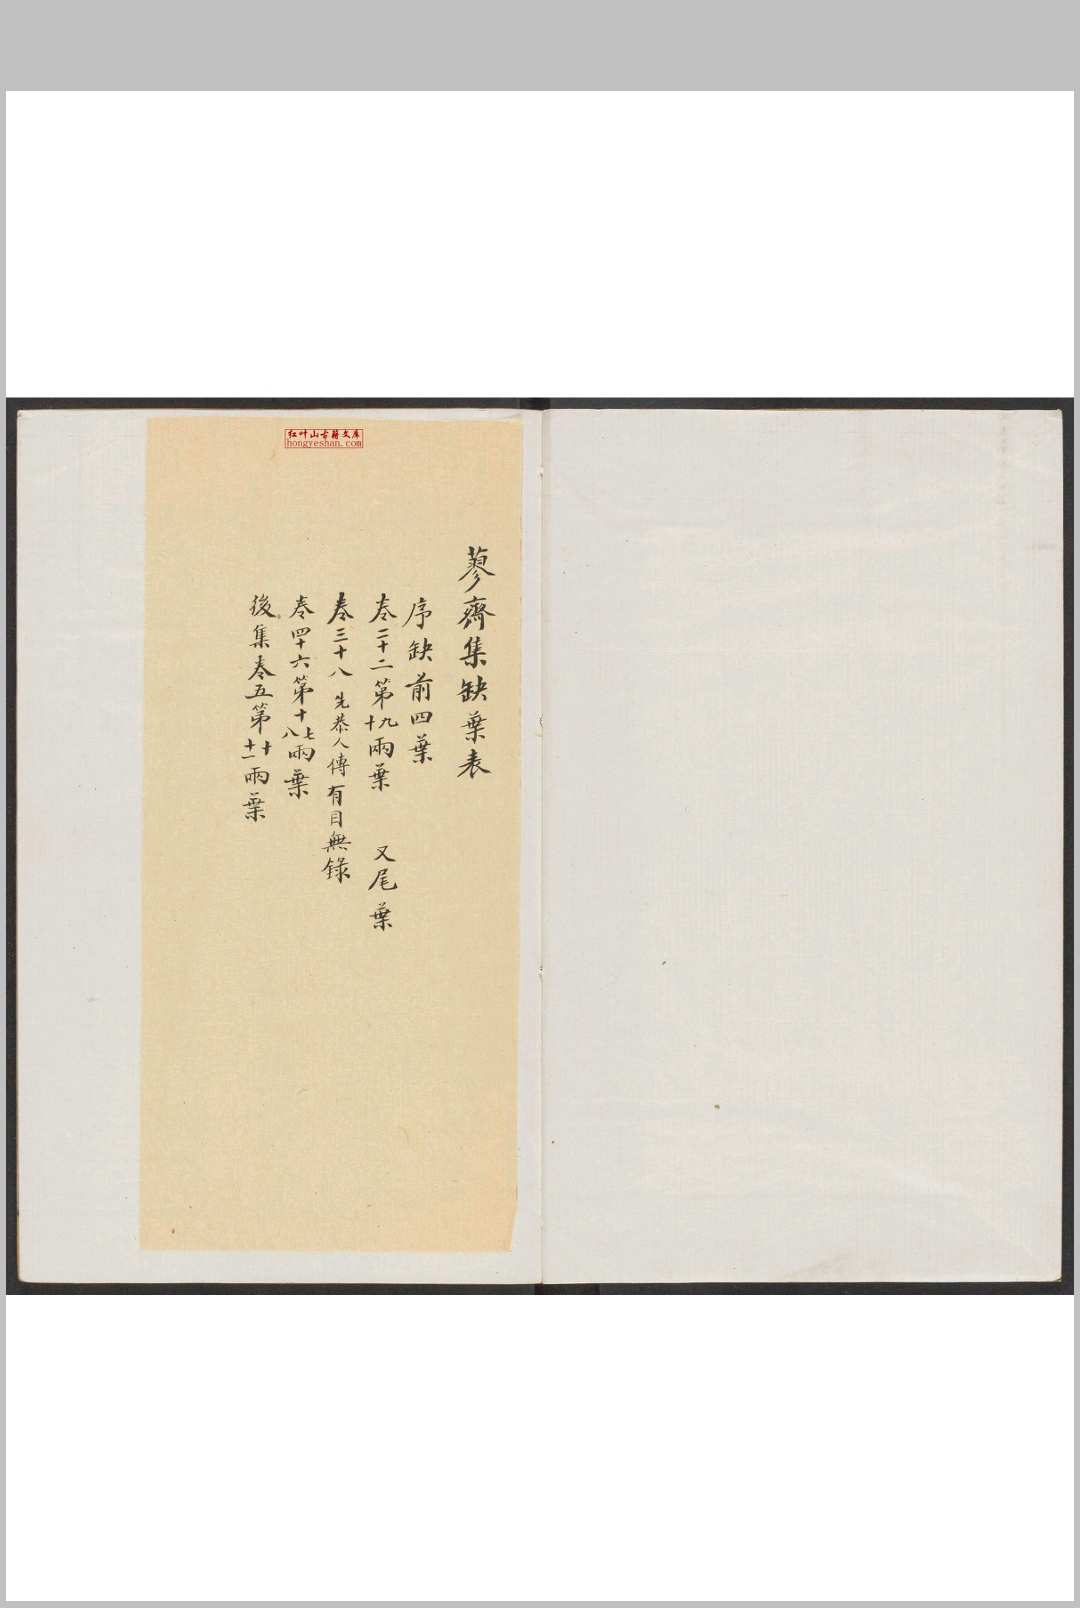 红叶山古籍文库
hongyeshan.com
蓼齋集缺葉表
序缺前四葉
卷二十二第九十兩葉 又尾葉
卷三十八先恭人傳有目無錄
卷四十六第十七八兩葉
後集卷五第十十一兩葉